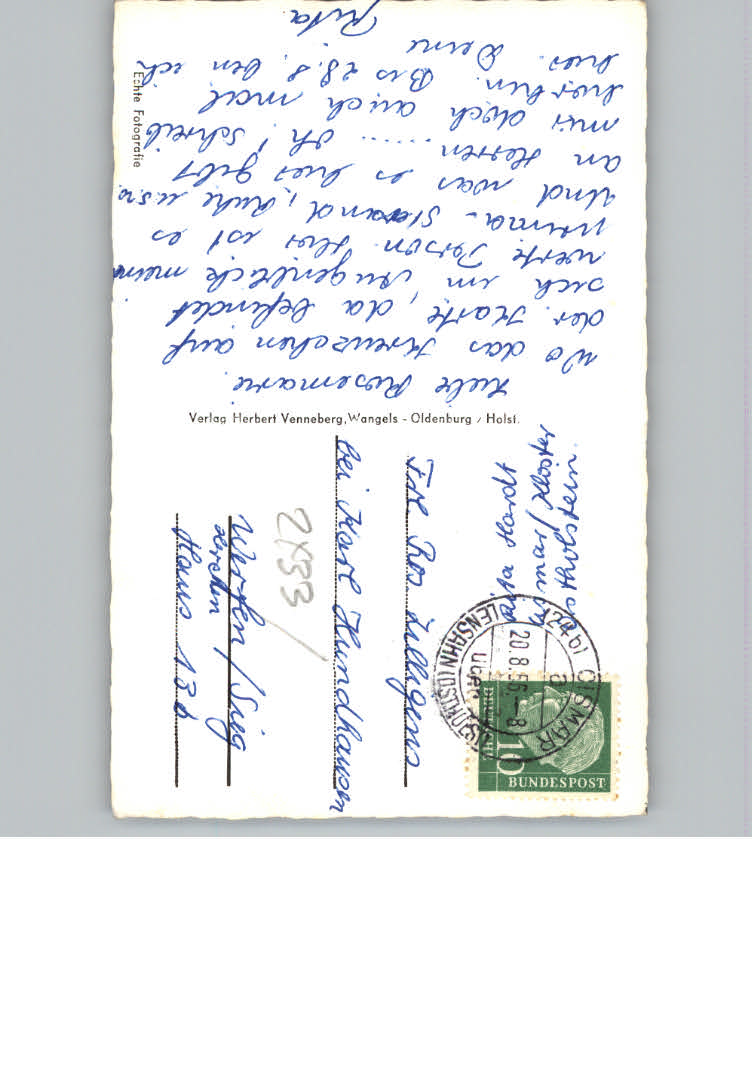 Liebe Rosemarie.
Wo das Kreuzchen auf
der Karte, da befindet
sich im Augenblick meine
werte Person. Hier ist es
prima - Strand, Ruhe u.s.w.
Und was es hier gibt
an Herren ..... oh! Schreib
mir doch auch mal
hierhin. Bis 28.8. bin ich
hier. Deine
Rita.
Echte Fotografie
Verlag Herbert Venneberg, Wangels - Oldenburg / Holst.
Rita Hardt
Cismar/Kloster
Ostholstein.
(24b) CISMAR
a
20.8.56.-8
LENSAHN (OSTHOLST)
10
BUNDESPOST
DEUTSCHE
Frl. Ros
bei Karl Hundhausen
2433
Werfen/Sieg
Haus 13